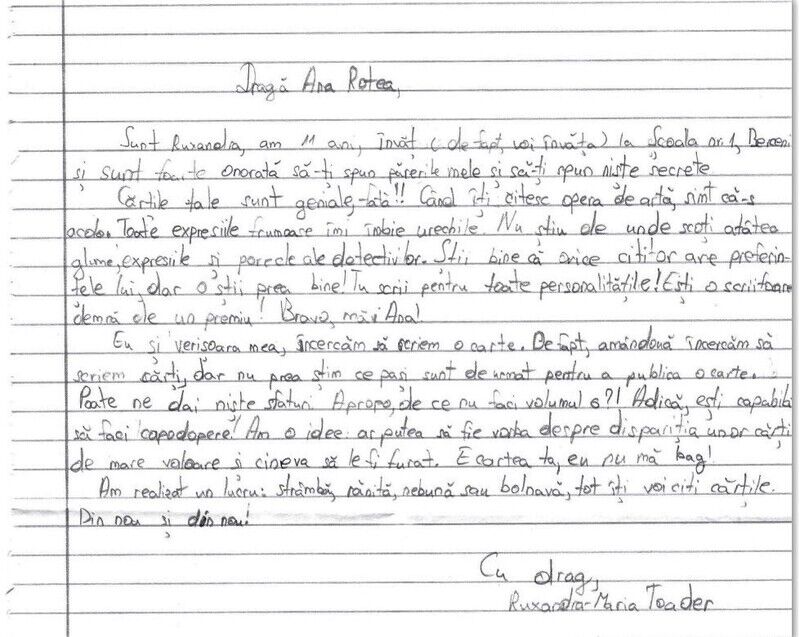 Dragă Ana Rotea,
Sunt Ruxandra, am 11 ani, învăț (de fapt, voi învăța) la Școala nr. 1, Berceni
și sunt foarte onorată să-ți spun părerile mele și să-ți spun niște secrete
Cărțile tale sunt geniale, fată!! Când îți citesc opera de artă, simt că-s
acolo. Toate expresiile frumoase îmi îmbie urechile. Nu știu de unde scoți atâtea
glume, expresiile și porecle ale detectivilor. Știi bine că orice cititor are preferin-
țele lui, dar o știi prea bine! Tu scrii pentru toate personalitățile! Ești o scriitoare
demnă de un premiu! Bravo, măi Ana!
Eu și verișoara mea, încercăm să scriem o carte. De fapt, amândouă încercăm să
scriem cărți, dar nu prea știm ce pași sunt de urmat pentru a publica o carte.
Poate ne dai niște sfaturi. Apropo, de ce nu faci volumul 6?! Adică, ești capabilă
să faci capodopere! Am o idee: ar putea să fie vorba despre dispariția unor cărți
de mare valoare și cineva să le fi furat. E cartea ta, eu nu mă bag!
Am realizat un lucru: strâmbă, rănită, nebună sau bolnavă, tot îți voi citi cărțile.
Din nou și din nou!
Cu drag,
Ruxandra-Maria Toader